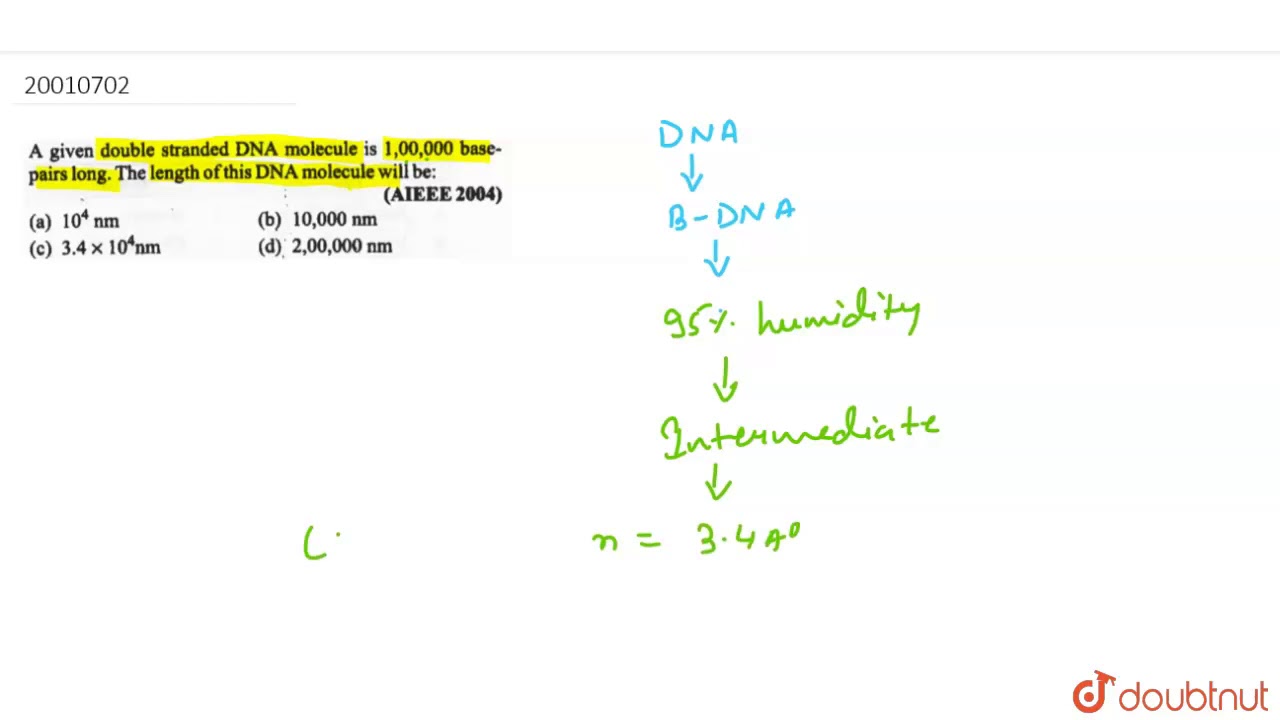 20010702
A given double stranded DNA molecule is 1,00,000 base-
pairs long. The length of this DNA molecule will be:
(AIEEE 2004)
(a) 10⁴ nm (b) 10,000 nm
(c) 3.4 × 10⁴nm (d) 2,00,000 nm
DNA
↓
B-DNA
↓
95%. humidity
↓
Intermediate
↓
n = 3.4 A°
doubtnut